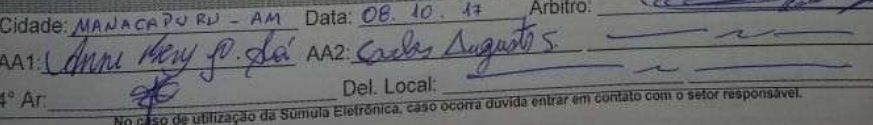 Cidade: MANACAPURU - AM Data: 08.10.17 Árbitro:
AA1: Anne Kesy P. Sá AA2: Carlos Augusto S.
4º Ar: Del. Local:
No caso de utilização da Súmula Eletrônica, caso ocorra dúvida entrar em contato com o setor responsável.